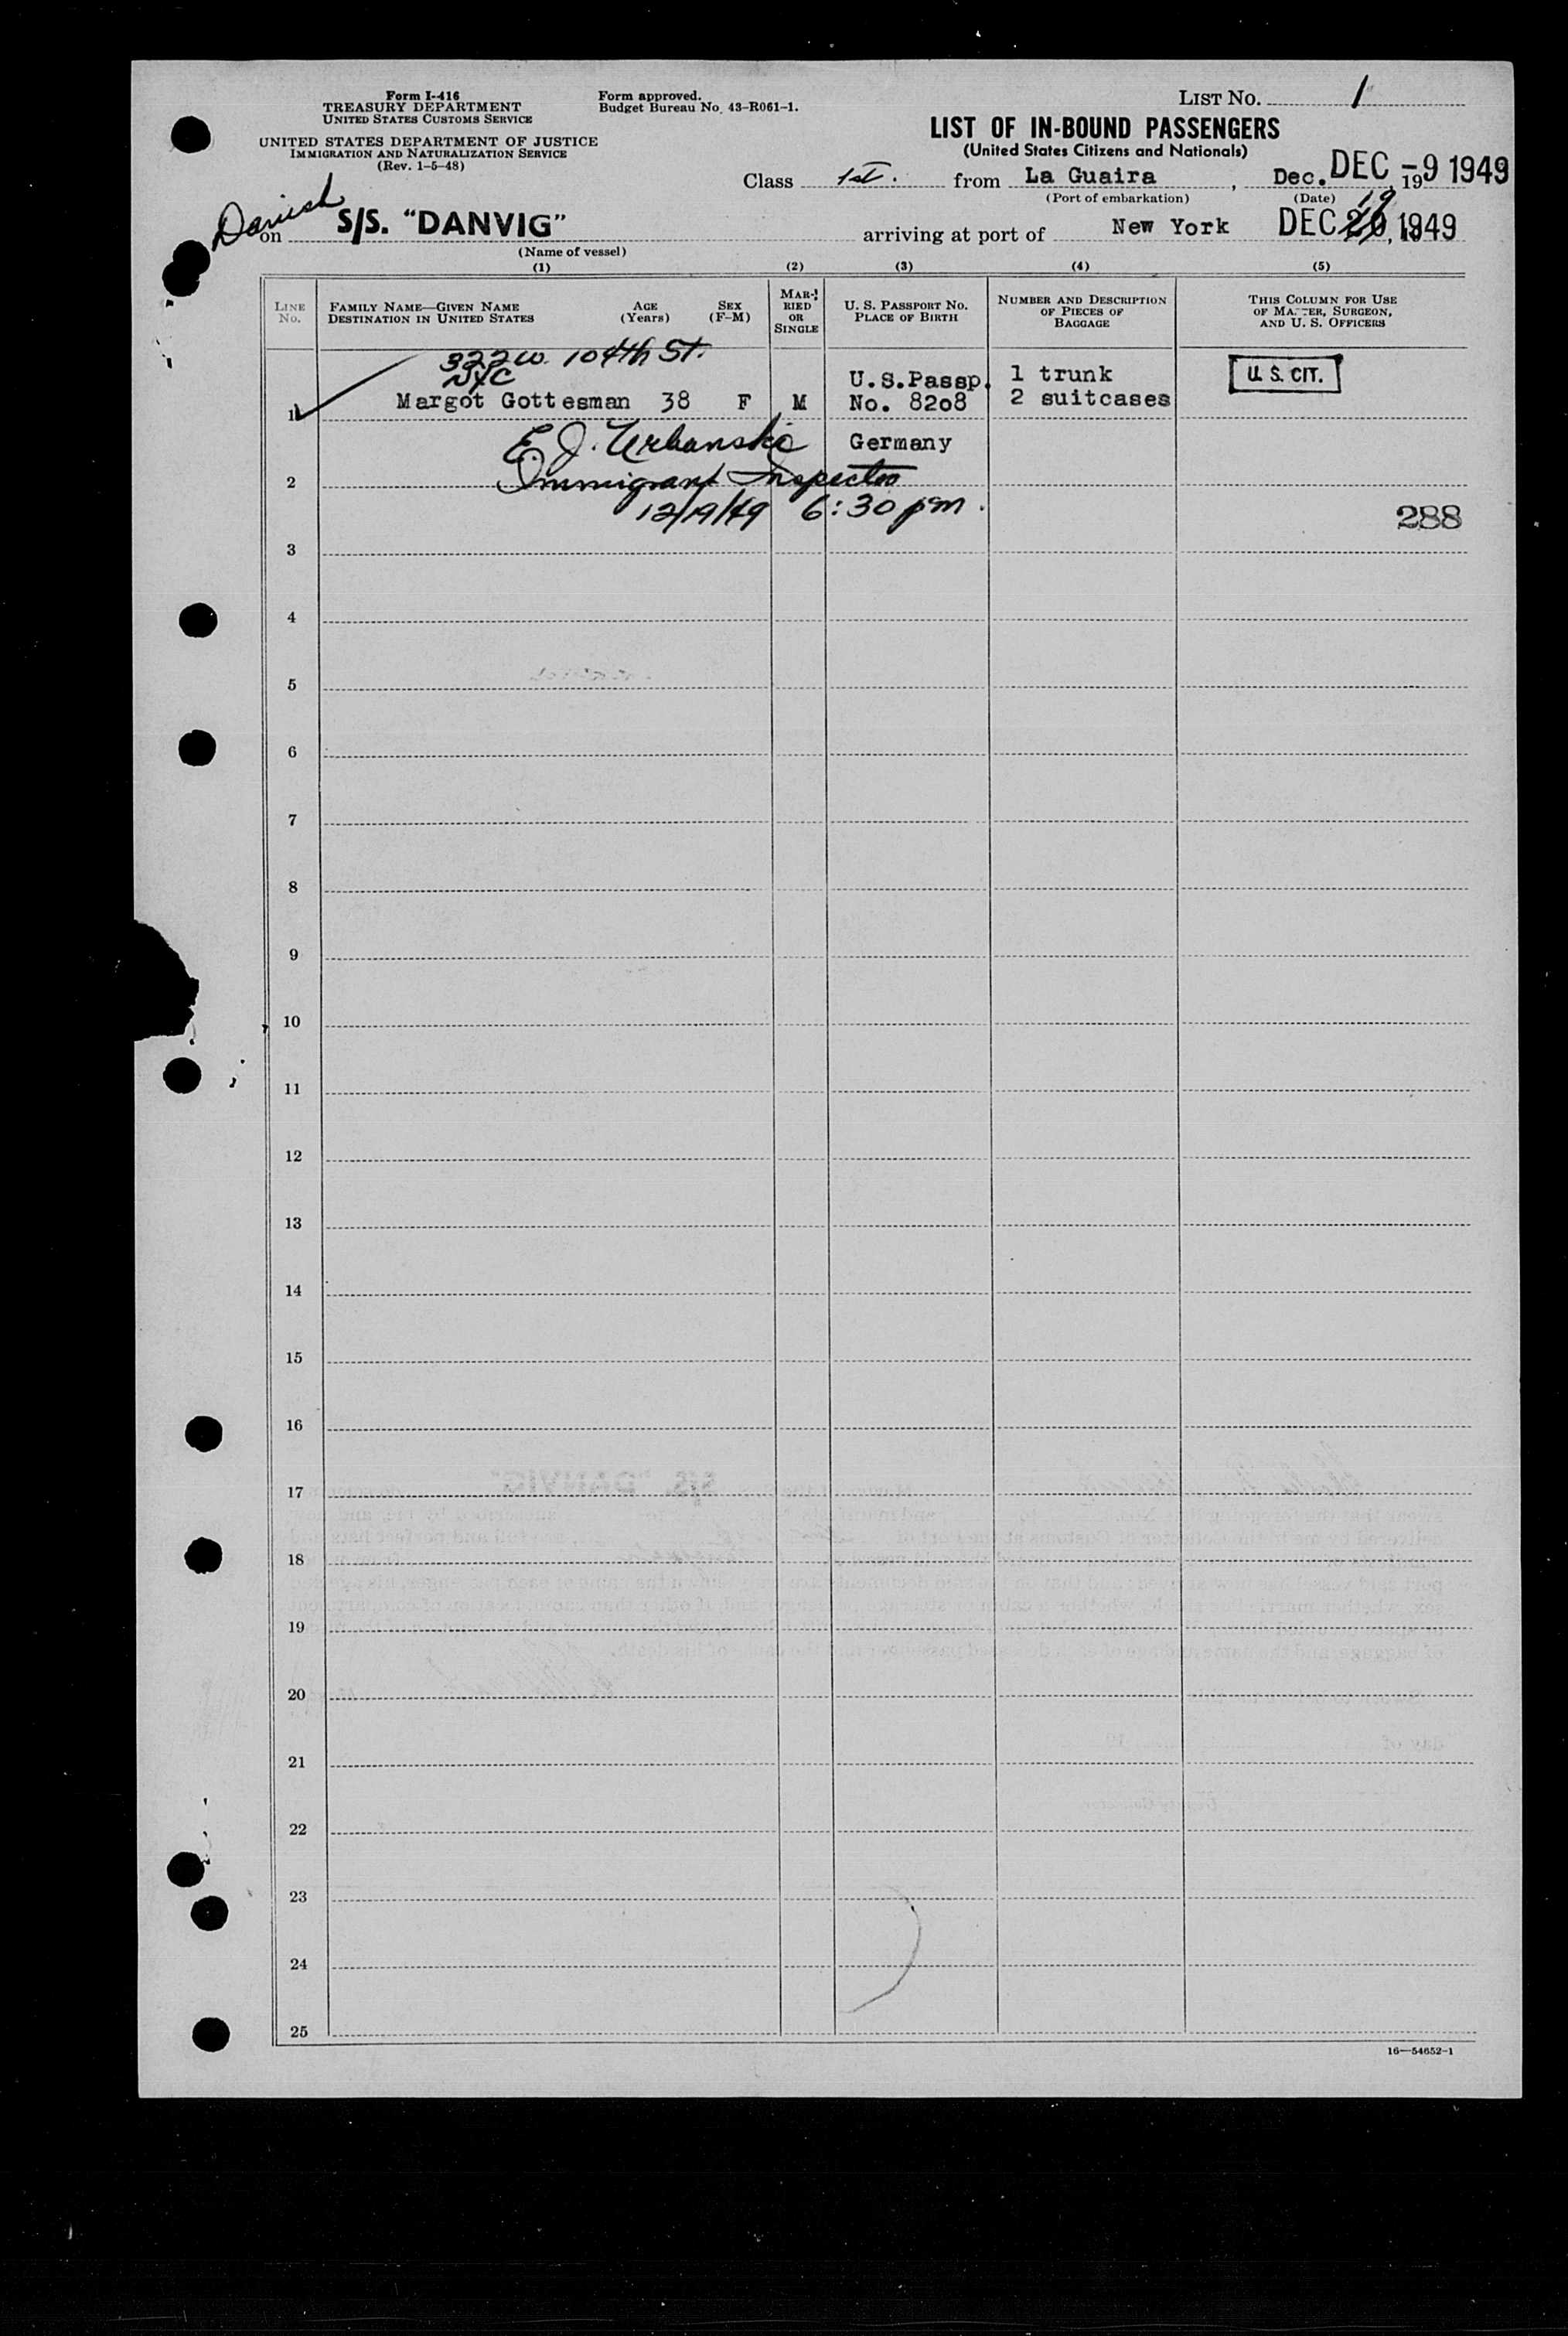 Form I-416
TREASURY DEPARTMENT
UNITED STATES CUSTOMS SERVICE
UNITED STATES DEPARTMENT OF JUSTICE
IMMIGRATION AND NATURALIZATION SERVICE
(Rev. 1-5-48)
Form approved.
Budget Bureau No. 43-R061-1.
LIST NO. 1
LIST OF IN-BOUND PASSENGERS
(United States Citizens and Nationals)
Class 1st. from La Guaira, Dec. DEC -9 1949 19
(Port of embarkation) (Date)
Danish
on S/S. "DANVIG" arriving at port of New York DEC 20, 1949 19
(Name of vessel)
(1) (2) (3) (4) (5)
LINE NO.
FAMILY NAME—GIVEN NAME
DESTINATION IN UNITED STATES
AGE (Years)
SEX (F-M)
MARRIED OR SINGLE
U. S. PASSPORT NO.
PLACE OF BIRTH
NUMBER AND DESCRIPTION OF PIECES OF BAGGAGE
THIS COLUMN FOR USE OF MASTER, SURGEON, AND U. S. OFFICERS
322 W. 104th St.
NYC
1 Margot Gottesman 38 F M U.S.Passp. No. 8208 1 trunk 2 suitcases U. S. CIT.
E. J. Urbanski Germany
2 Immigrant Inspector
12/19/49 6:30 pm.
288
3
4
5
6
7
8
9
10
11
12
13
14
15
16
17
18
19
20
21
22
23
24
25
16—54652-1